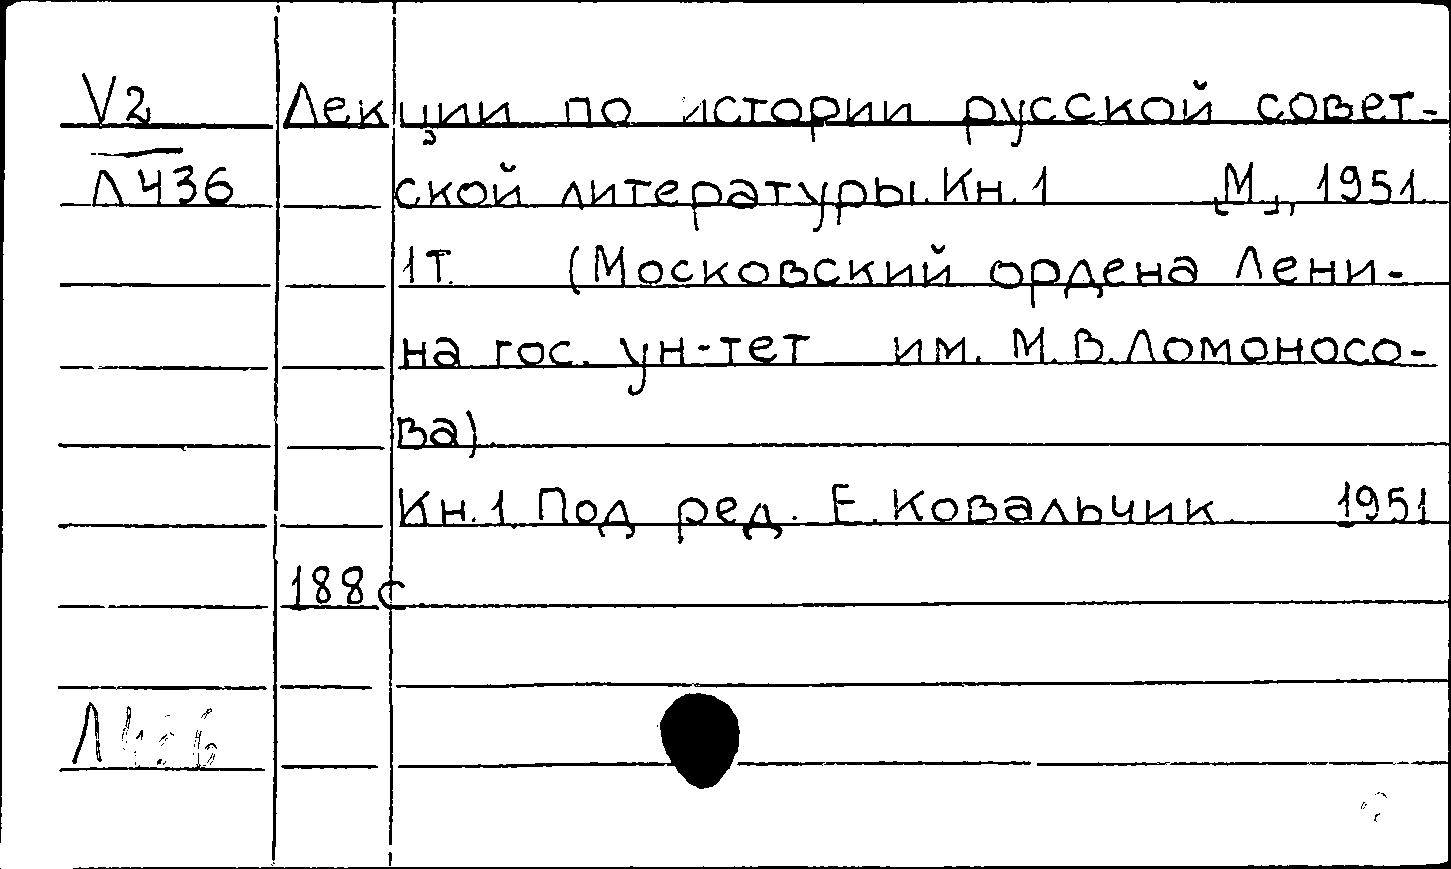 V2 Лекции по истории русской совет-
Л436 ской литературы. Кн. 1 [М], 1951.
1т. (Московский ордена Лени-
на гос. ун-тет им. М.В. Ломоносо-
ва)
Кн. 1 Под ред. Е. Ковальчик 1951
188 с